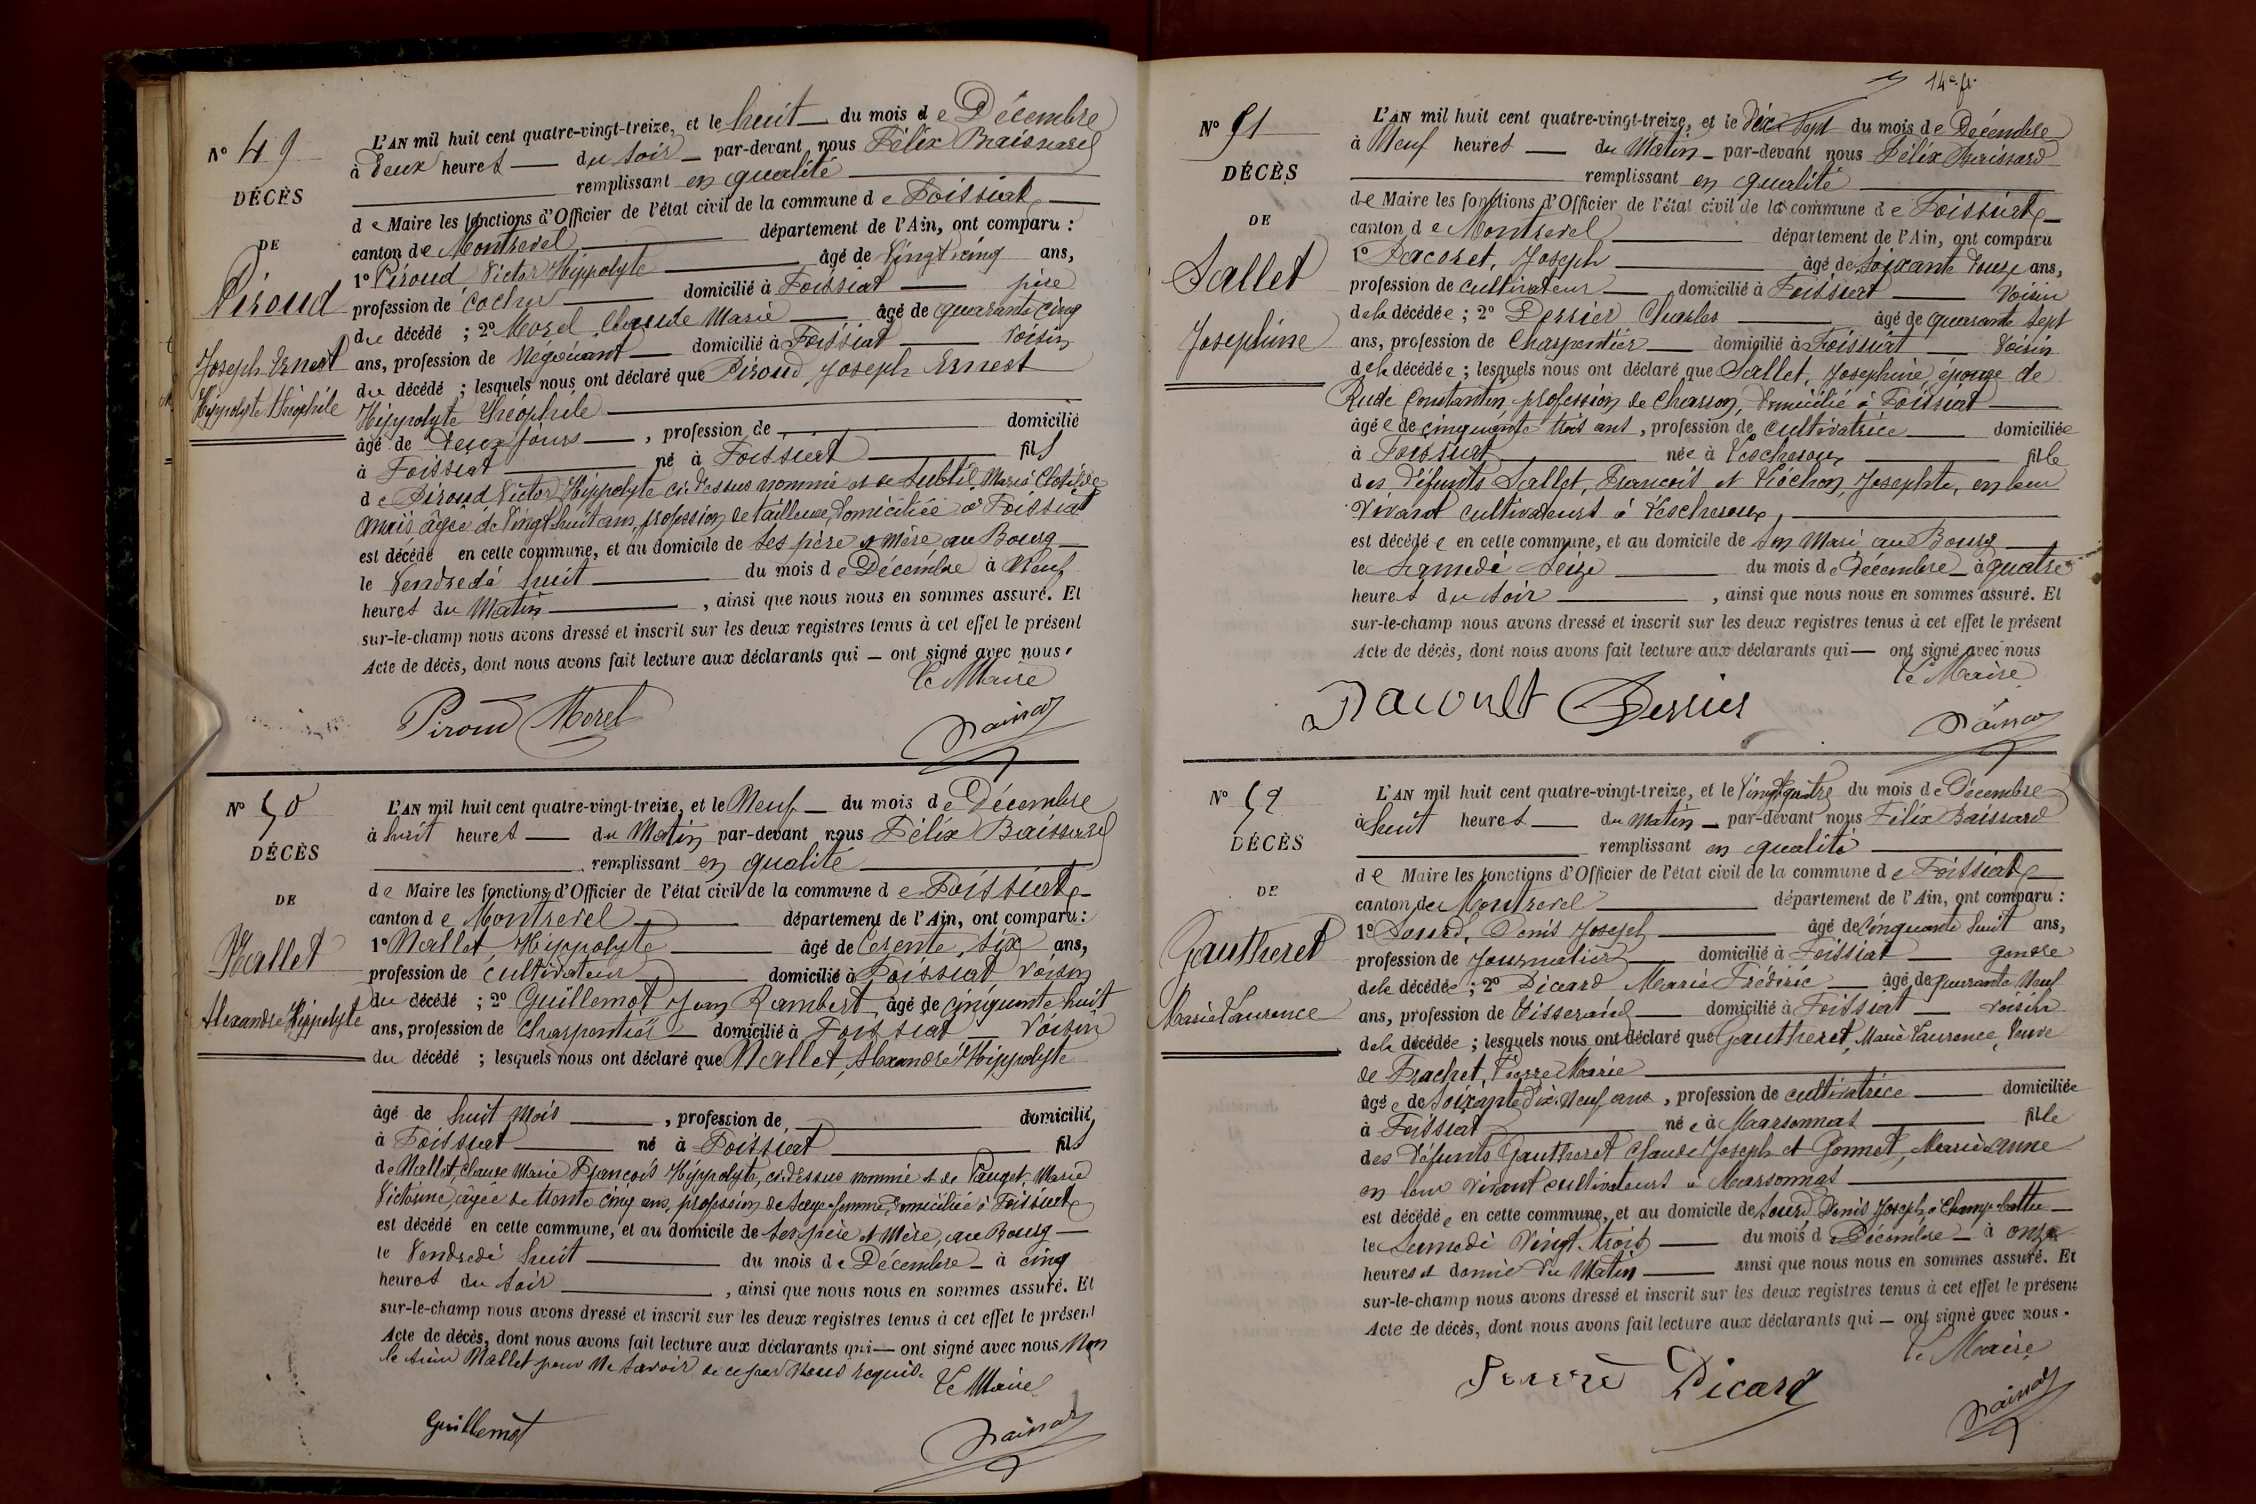 N° 49
DÉCÈS
DE
Piroud
Joseph Ernest
Hippolyte Théophile
L'AN mil huit cent quatre-vingt-treize, et le huit du mois de Décembre
à Deux heures du soir par-devant nous Félix Baissard
remplissant en qualité
de Maire les fonctions d'Officier de l'état civil de la commune de Foissiat
canton de Montrevel département de l'Ain, ont comparu :
1° Piroud Victor Hippolyte âgé de Vingt cinq ans,
profession de Cocher domicilié à Foissiat père
du décédé ; 2° Morel Claude Marie âgé de quarante cinq
ans, profession de Négociant domicilié à Foissiat Voisin
du décédé ; lesquels nous ont déclaré que Piroud, Joseph Ernest
Hippolyte Théophile
âgé de Deux jours , profession de domicilié
à Foissiat né à Foissiat fils
de Piroud Victor Hippolyte ci-dessus nommé et de Subtil Marie Clotilde
Anaïs, âgée de Vingt huit ans, profession de tailleuse, Domiciliée à Foissiat
est décédé en cette commune, et au domicile de ses père et mère au Bourg
le Vendredi huit du mois de Décembre à Neuf
heures du Matin , ainsi que nous nous en sommes assuré. Et
sur-le-champ nous avons dressé et inscrit sur les deux registres tenus à cet effet le présent
Acte de décès, dont nous avons fait lecture aux déclarants qui — ont signé avec nous.
Le Maire
Piroud Morel Baissard
N° 50
DÉCÈS
DE
Mallet
Alexandre Hippolyte
L'AN mil huit cent quatre-vingt-treize, et le Neuf du mois de Décembre
à huit heures du Matin par-devant nous Félix Baissard
remplissant en qualité
de Maire les fonctions d'Officier de l'état civil de la commune de Foissiat
canton de Montrevel département de l'Ain, ont comparu :
1° Mallet, Hippolyte âgé de six ans,
profession de Cultivateur domicilié à Foissiat Voisin
du décédé ; 2° Guillemot Jean Rambert âgé de cinquante huit
ans, profession de Charpentier domicilié à Foissiat Voisin
du décédé ; lesquels nous ont déclaré que Mallet, Alexandre Hippolyte
âgé de huit Mois , profession de domicilié
à Foissiat né à Foissiat fils
de Mallet, Claude Marie François Hippolyte, ci-dessus nommé et de Pauget, Marie
Victorine, âgée de trente cinq ans, profession de Sage femme, Domiciliée à Foissiat
est décédé en cette commune, et au domicile de ses père et mère, au Bourg
le Vendredi huit du mois de Décembre à cinq
heures du soir , ainsi que nous nous en sommes assuré. Et
sur-le-champ nous avons dressé et inscrit sur les deux registres tenus à cet effet le présent
Acte de décès, dont nous avons fait lecture aux déclarants qui — ont signé avec nous Non
le sieur Mallet pour Ne Savoir de ce par Nous requis.
Le Maire
Guillemot Baissard
14e f.
N° 51
DÉCÈS
DE
Sallet
Josephine
L'AN mil huit cent quatre-vingt-treize, et le Dix Sept du mois de Décembre
à Neuf heures du Matin par-devant nous Félix Baissard
remplissant en qualité
de Maire les fonctions d'Officier de l'état civil de la commune de Foissiat
canton de Montrevel département de l'Ain, ont comparu
1° Pacoret, Joseph âgé de Soixante Douze ans,
profession de cultivateur domicilié à Foissiat Voisin
de la décédée ; 2° Perrier Charles âgé de quarante sept
ans, profession de Charpentier domicilié à Foissiat Voisin
de la décédée ; lesquels nous ont déclaré que Sallet, Josephine, épouse de
Rude Constantin profession de Charron, Domicilié à Foissiat
âgée de cinquante trois ans , profession de cultivatrice domiciliée
à Foissiat née à Lescheroux fille
des Défunts Sallet, François et Piochon, Josephte, en leur
Vivant cultivateurs à Lescheroux,
est décédée en cette commune, et au domicile de son Mari au Bourg
le Samedi Seize du mois de Décembre à quatre
heures du soir , ainsi que nous nous en sommes assuré. Et
sur-le-champ nous avons dressé et inscrit sur les deux registres tenus à cet effet le présent
Acte de décès, dont nous avons fait lecture aux déclarants qui — ont signé avec nous
Le Maire
Perrier Baissard
N° 52
DÉCÈS
DE
Gautheret
Marie Laurence
L'AN mil huit cent quatre-vingt-treize, et le Vingt quatre du mois de Décembre
à huit heures du Matin par-devant nous Félix Baissard
remplissant en qualité
de Maire les fonctions d'Officier de l'état civil de la commune de Foissiat
canton de Montrevel département de l'Ain, ont comparu :
1° Sourd, Denis Joseph âgé de Cinquante huit ans,
profession de Journalier domicilié à Foissiat gendre
de la décédée ; 2° Picard Marie Frédéric âgé de quarante Neuf
ans, profession de Tisserand domicilié à Foissiat Voisin
de la décédée ; lesquels nous ont déclaré que Gautheret, Marie Laurence, Veuve
de Frachet, Pierre Marie
âgée de Soixante Dix Neuf ans , profession de cultivatrice domiciliée
à Foissiat née à Marsonnas fille
des Défunts Gautheret Claude Joseph et Gonnet, Marie Anne
en leur vivant cultivateurs à Marsonnas
est décédée en cette commune, et au domicile de Sourd Denis Joseph, à
le Samedi Vingt trois du mois de Décembre à onze
heures et demie du Matin ainsi que nous nous en sommes assuré. Et
sur-le-champ nous avons dressé et inscrit sur les deux registres tenus à cet effet le présent
Acte de décès, dont nous avons fait lecture aux déclarants qui — ont signé avec nous.
Le Maire
Picard Baissard